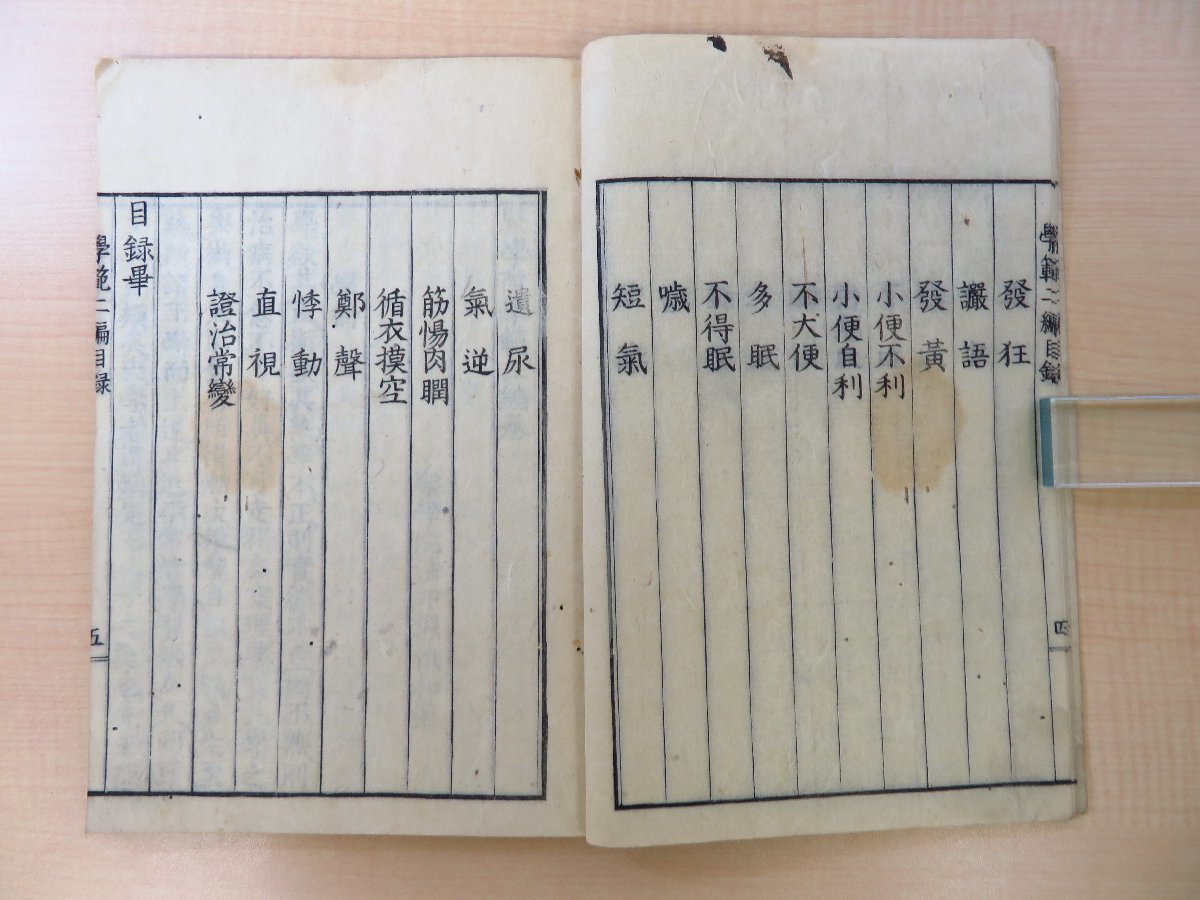 學範二編目錄
發狂
讝語
發黃
小便不利
小便自利
不大便
多眠
不得眠
噦
短氣
四
遺尿
氣逆
筋惕肉瞤
循衣摸空
鄭聲
悸動
直視
證治常變
目録畢
學範二編目錄
五